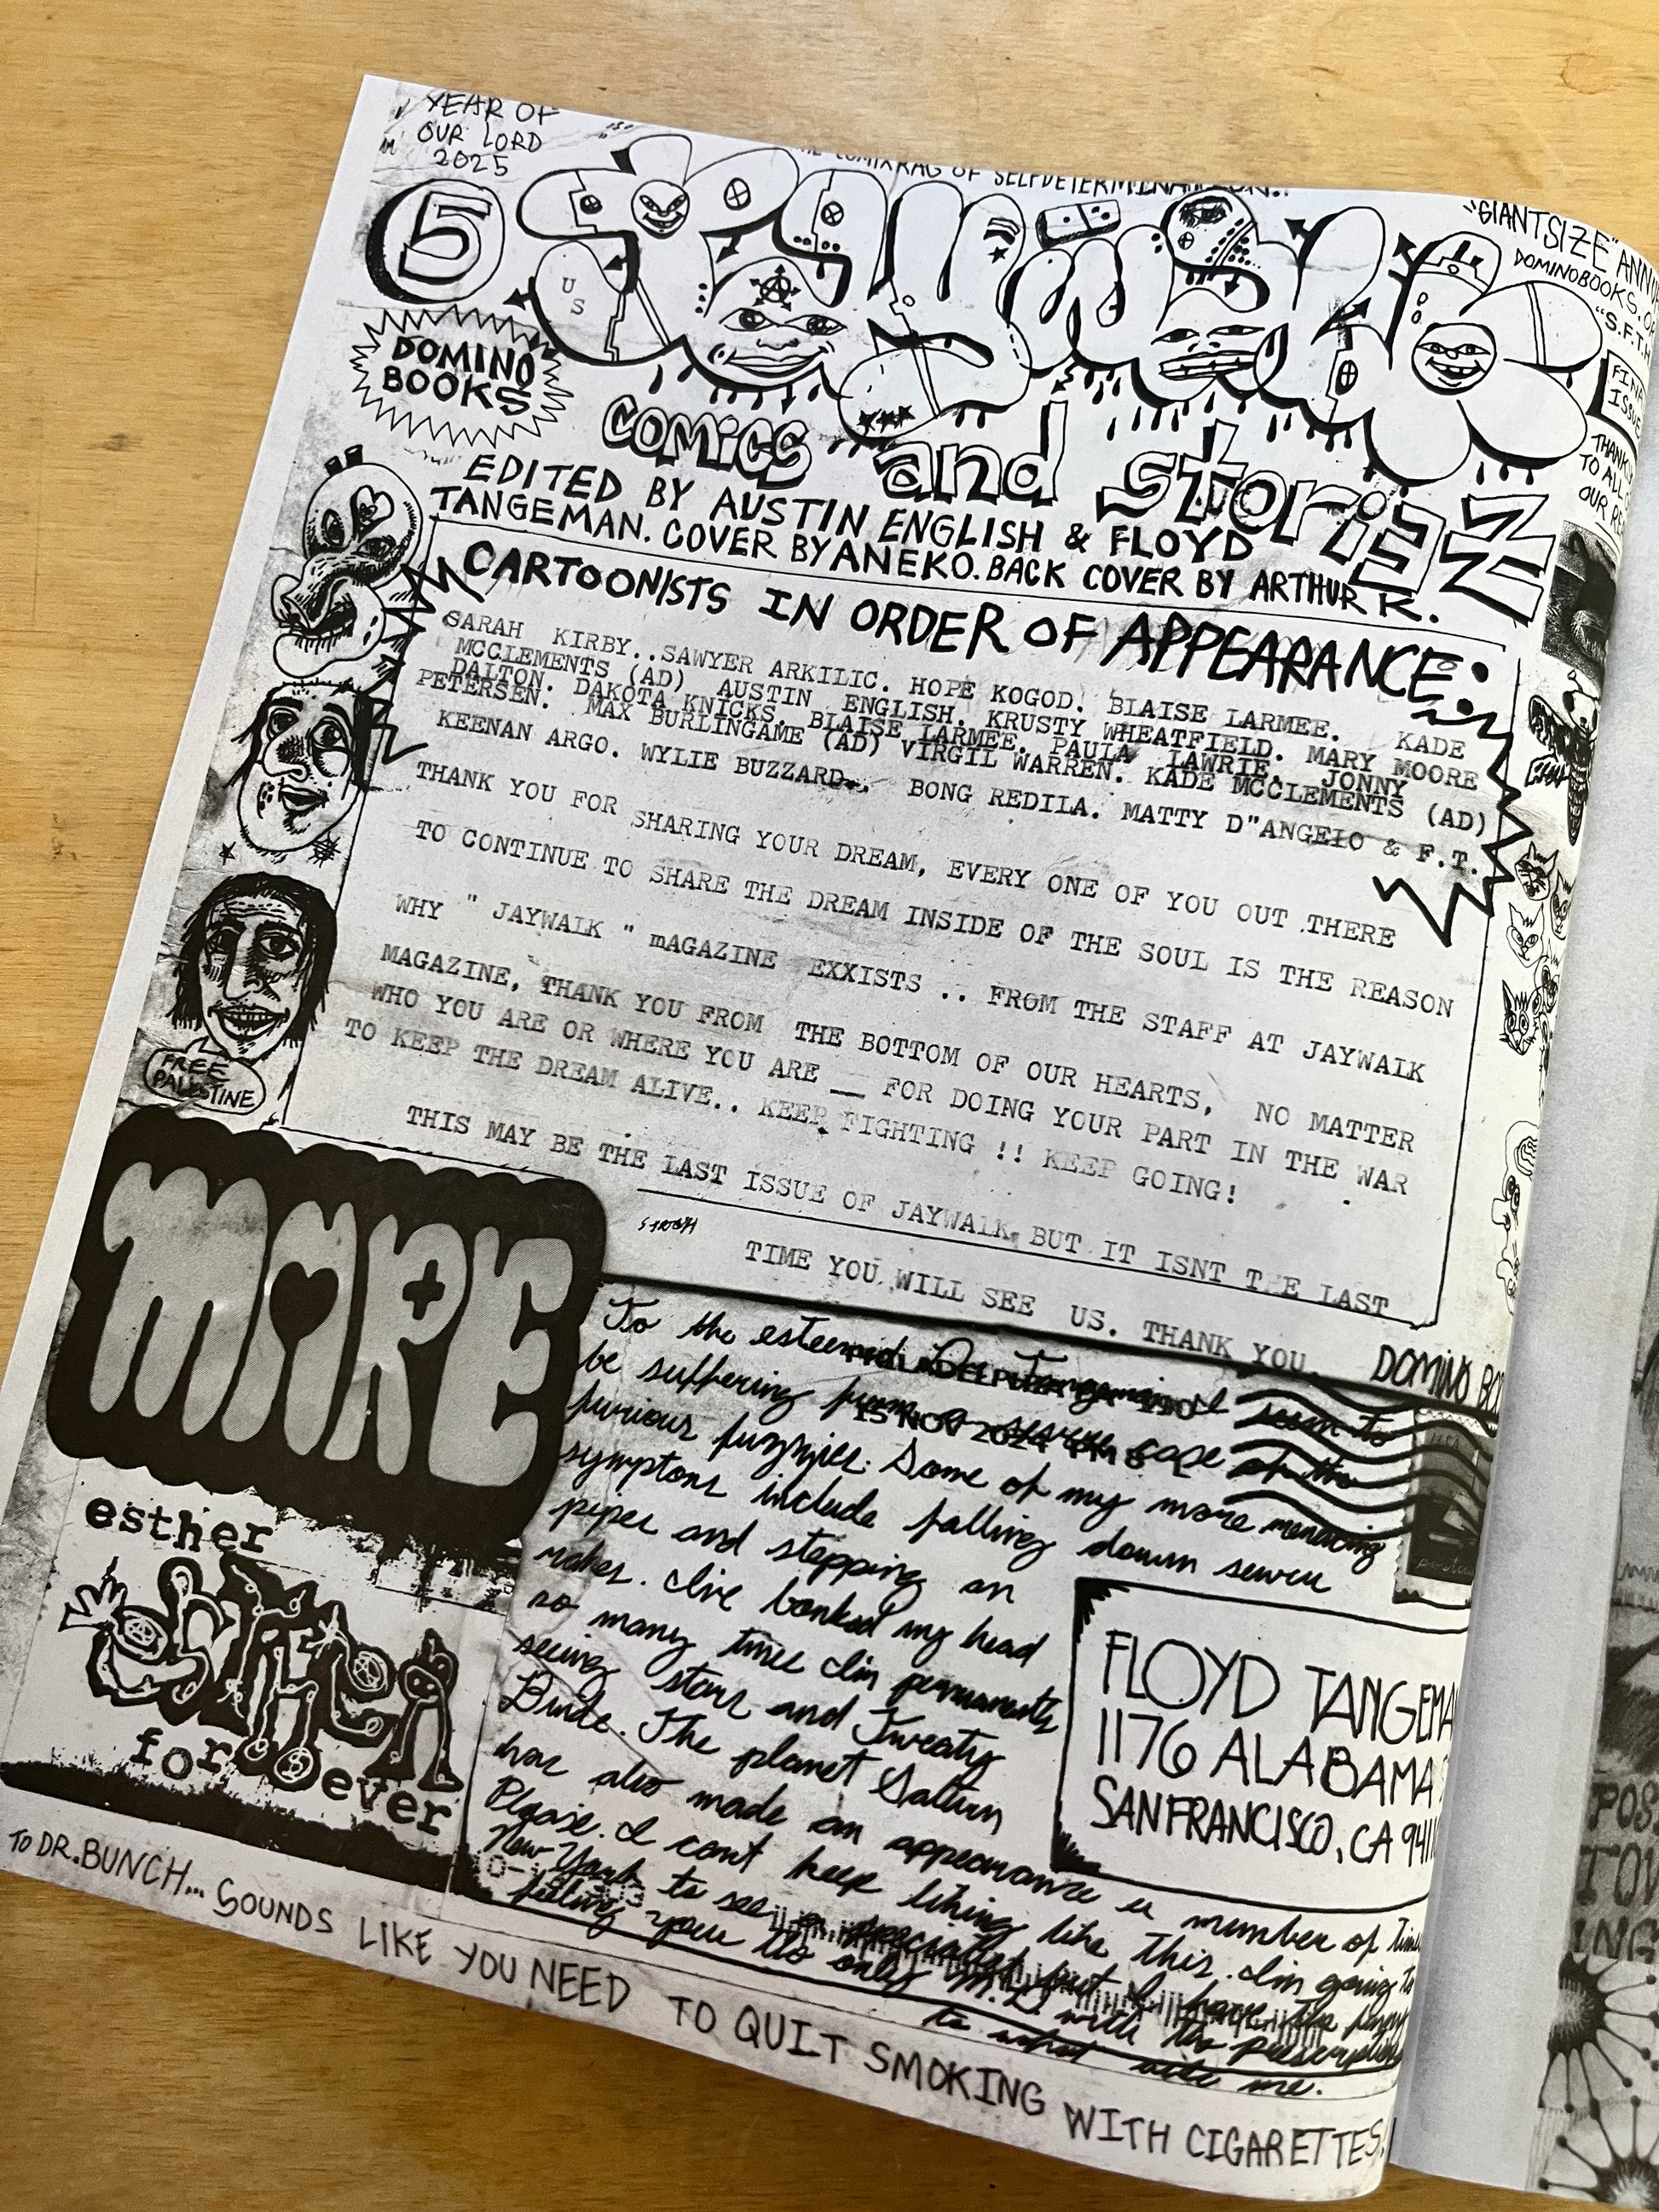 YEAR OF
OUR LORD
2025
COMIX RAG OF SELFDETERMINATION..
"GIANTSIZE"
DOMINOBOOKS.
"S.F.T.
5
US
DOMINO
BOOKS
JayWalk
COMiCS and storiezz
THANK
TO ALL
OUR
EDITED BY AUSTIN ENGLISH & FLOYD
TANGEMAN. COVER BY ANEKO. BACK COVER BY ARTHUR K.
CARTOONISTS IN ORDER OF APPEARANCE:
SARAH KIRBY..SAWYER ARKILIC. HOPE KOGOD. BLAISE LARMEE. KADE
MCCLEMENTS (AD) AUSTIN ENGLISH. KRUSTY WHEATFIELD. MARY MOORE
DALTON. DAKOTA KNICKS. BLAISE LARMEE. PAULA LAWRIE. JONNY
PETERSEN. MAX BURLINGAME (AD) VIRGIL WARREN. KADE MCCLEMENTS (AD)
KEENAN ARGO. WYLIE BUZZARD.. BONG REDILA. MATTY D"ANGELO & F.T.
THANK YOU FOR SHARING YOUR DREAM, EVERY ONE OF YOU OUT THERE
TO CONTINUE TO SHARE THE DREAM INSIDE OF THE SOUL IS THE REASON
WHY " JAYWALK " mAGAZINE EXXISTS .. FROM THE STAFF AT JAYWALK
MAGAZINE, THANK YOU FROM THE BOTTOM OF OUR HEARTS, NO MATTER
WHO YOU ARE OR WHERE YOU ARE __ FOR DOING YOUR PART IN THE WAR
TO KEEP THE DREAM ALIVE.. KEEP FIGHTING !! KEEP GOING!
THIS MAY BE THE LAST ISSUE OF JAYWALK BUT IT ISNT THE LAST
TIME YOU WILL SEE US. THANK YOU
FREE
PALESTINE
MORE
esther
ESTHER
for ever
DOMINO
15 NOV 2024 PM
To the esteemed Dr. Tangeman, I seem to
be suffering from a severe case of the
furious fuzzies. Some of my more menacing
symptons include falling down sewer
pipes and stepping on
rakes. Ive bonked my head
so many times Im permanents
seeing stars and Tweaty
Birds. The planet Saturn
has also made an appearance a number of times
Please. I cant keep living like this. Im going to
New York to see a specialist but I have the funny
feeling your the only M.D with the prescription
to what ails me.
FLOYD TANGEMA
1176 ALABAMA
SAN FRANCISCO, CA 941
TO DR. BUNCH... SOUNDS LIKE YOU NEED TO QUIT SMOKING WITH CIGARETTES!